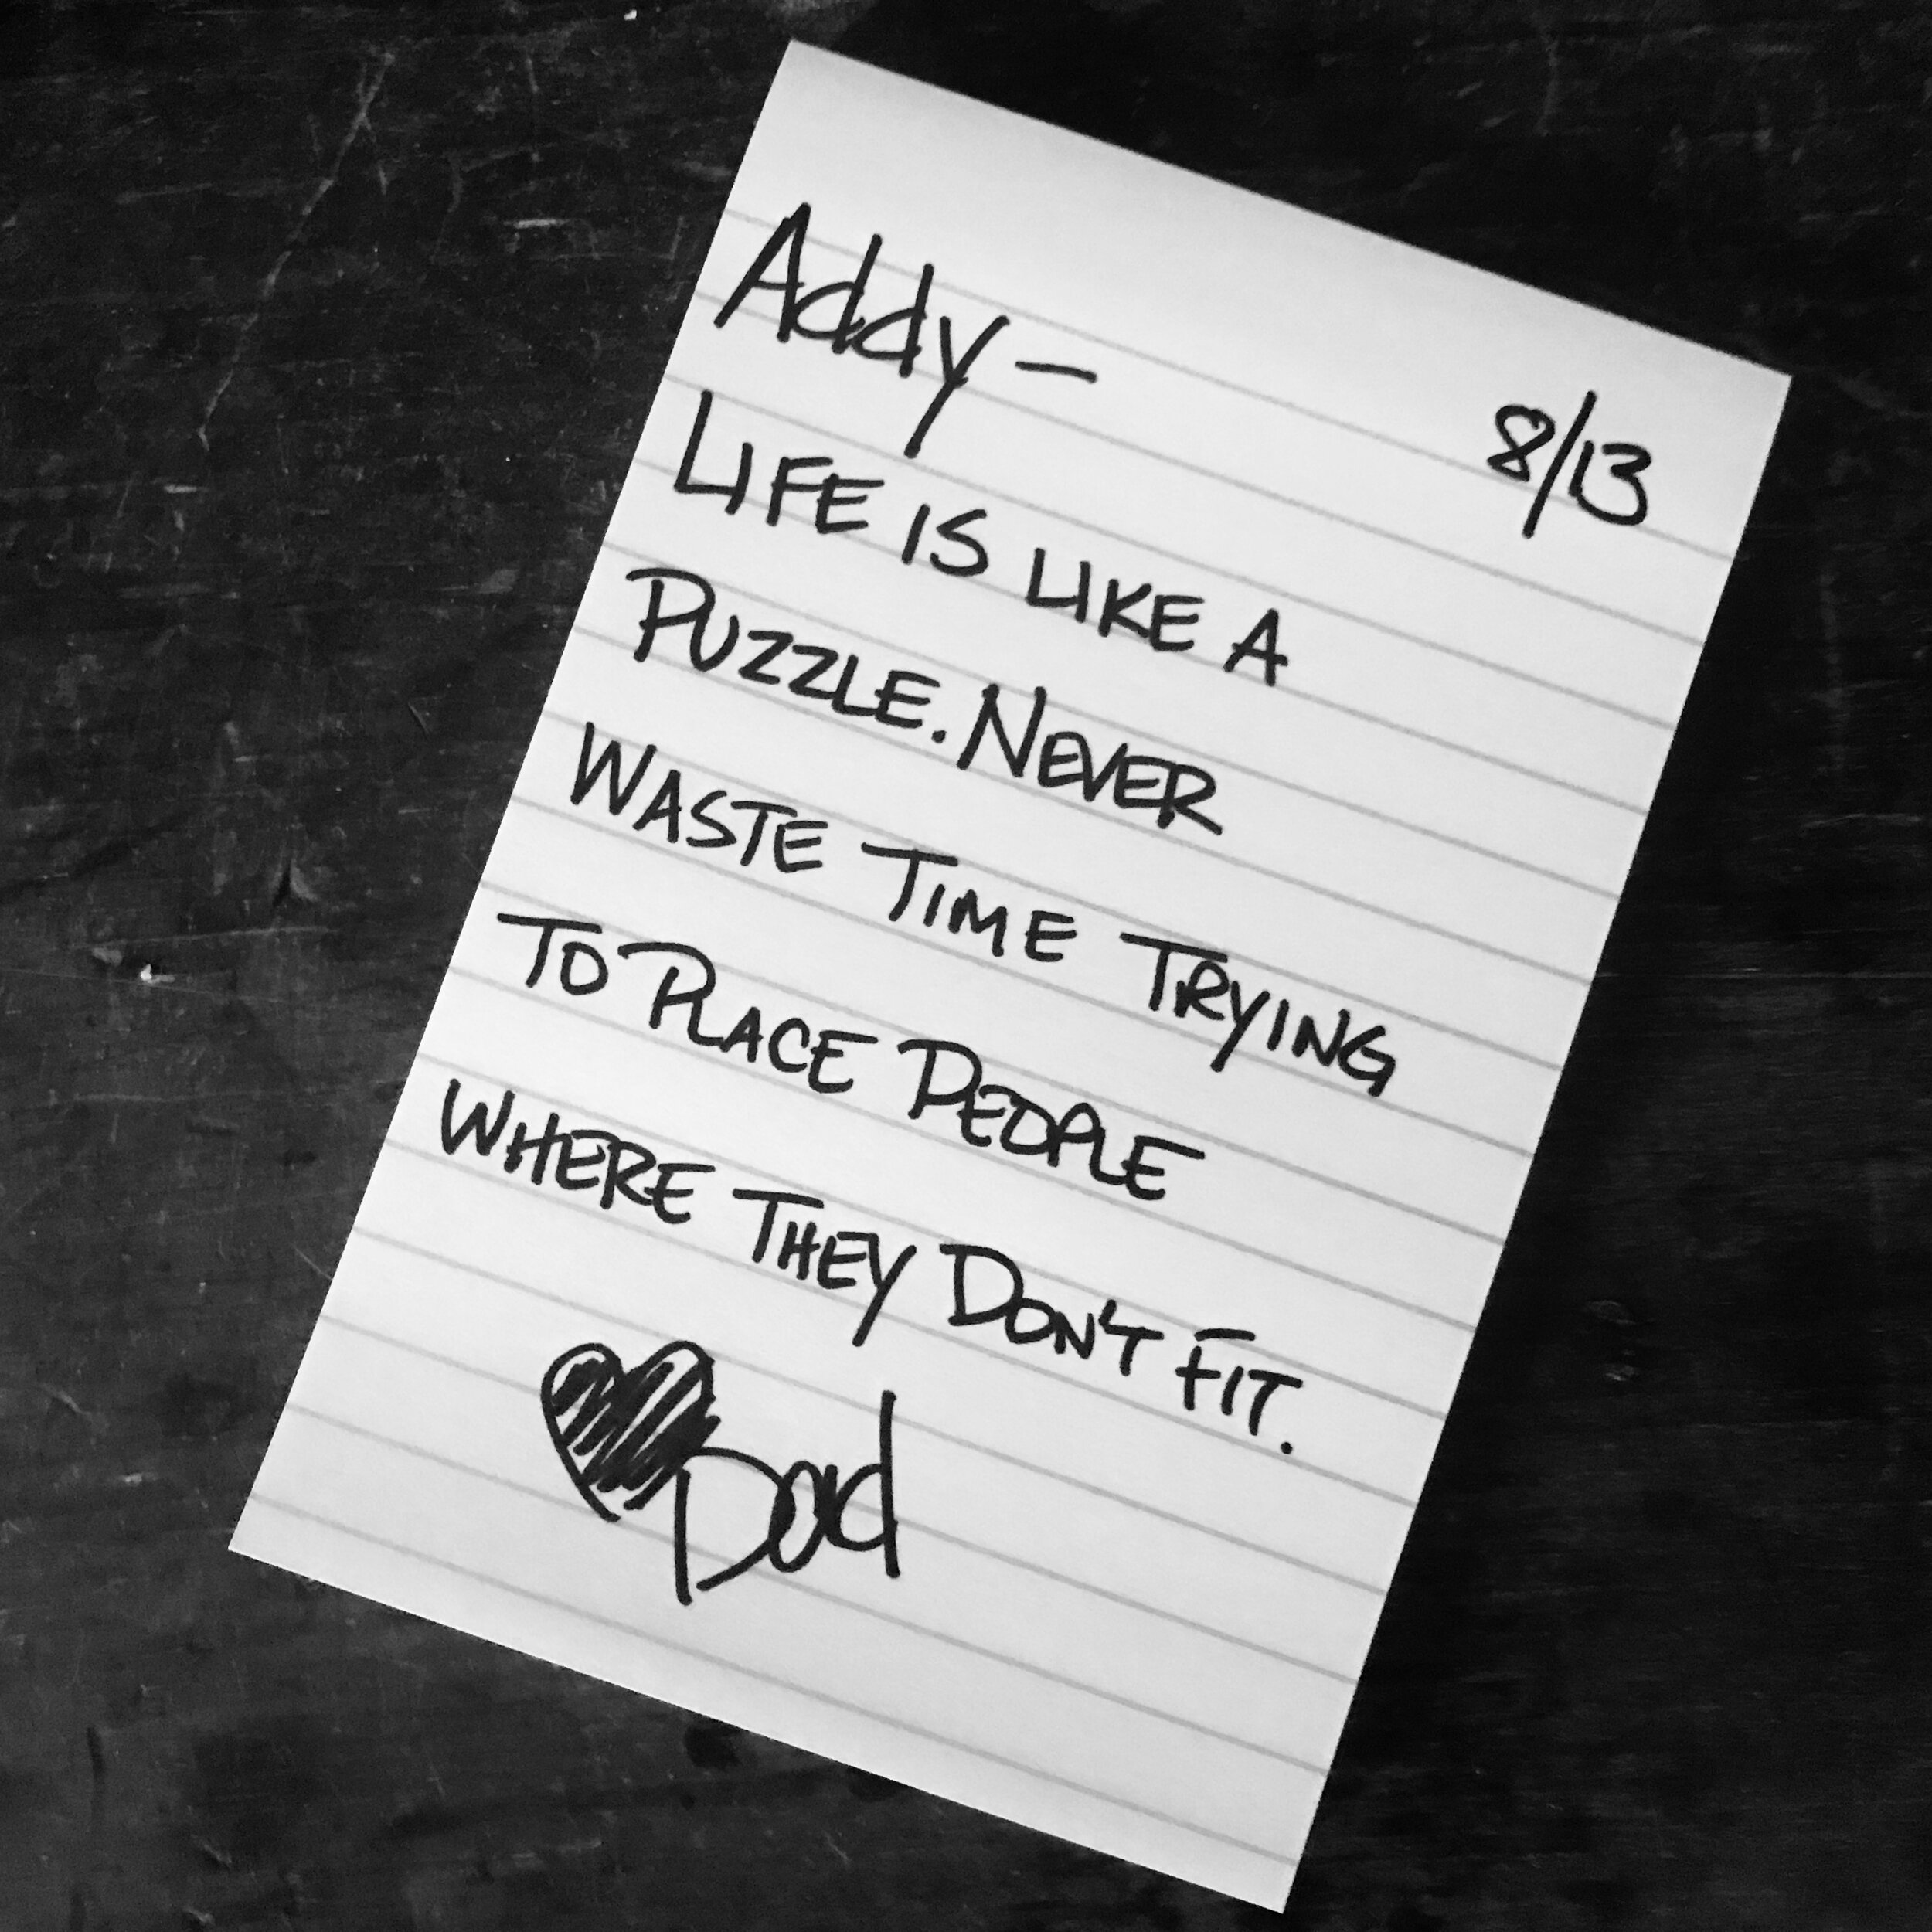 Addy —
8/13
LIFE IS LIKE A
PUZZLE. NEVER
WASTE TIME TRYING
TO PLACE PEOPLE
WHERE THEY DON'T FIT.
Dad